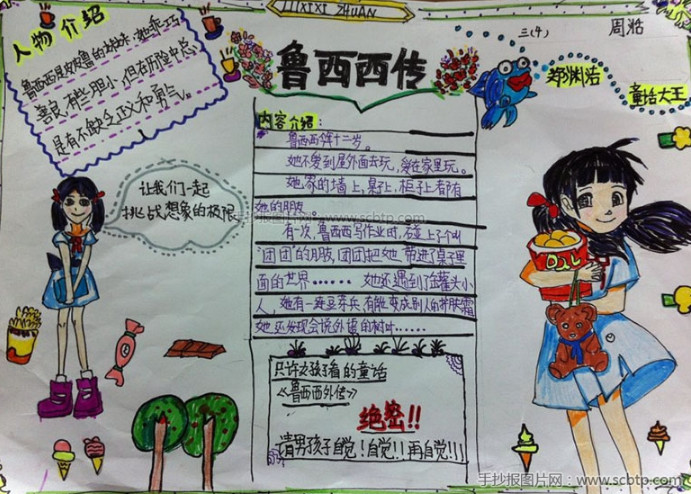 LUXIXI ZHUAN
三(4) 周浩
鲁西西传
郑渊洁
童话大王
人物介绍
鲁西西是皮皮鲁的妹妹,她乖巧
善良,有些胆小,但在历险中总
是有不缺乏正义和勇气。
让我们一起
挑战想象的极限
内容介绍:
鲁西西今年十二岁。
她不爱到屋外面去玩,爱在家里玩。
她家的墙上,桌子上,柜子上都有
她的朋友。
有一次,鲁西西写作业时,碰上了个叫
"团团"的朋友,团团把她带进了桌子里
面的世界……她还遇到了罐头小
人,她有一连豆芽兵,有能变成别人的护肤霜
她还发现会说外语的树叶……
只许女孩子看的童话
《鲁西西外传》
绝密!!
请男孩子自觉!自觉!!再自觉!!!
手抄报图片网:www.scbtp.com